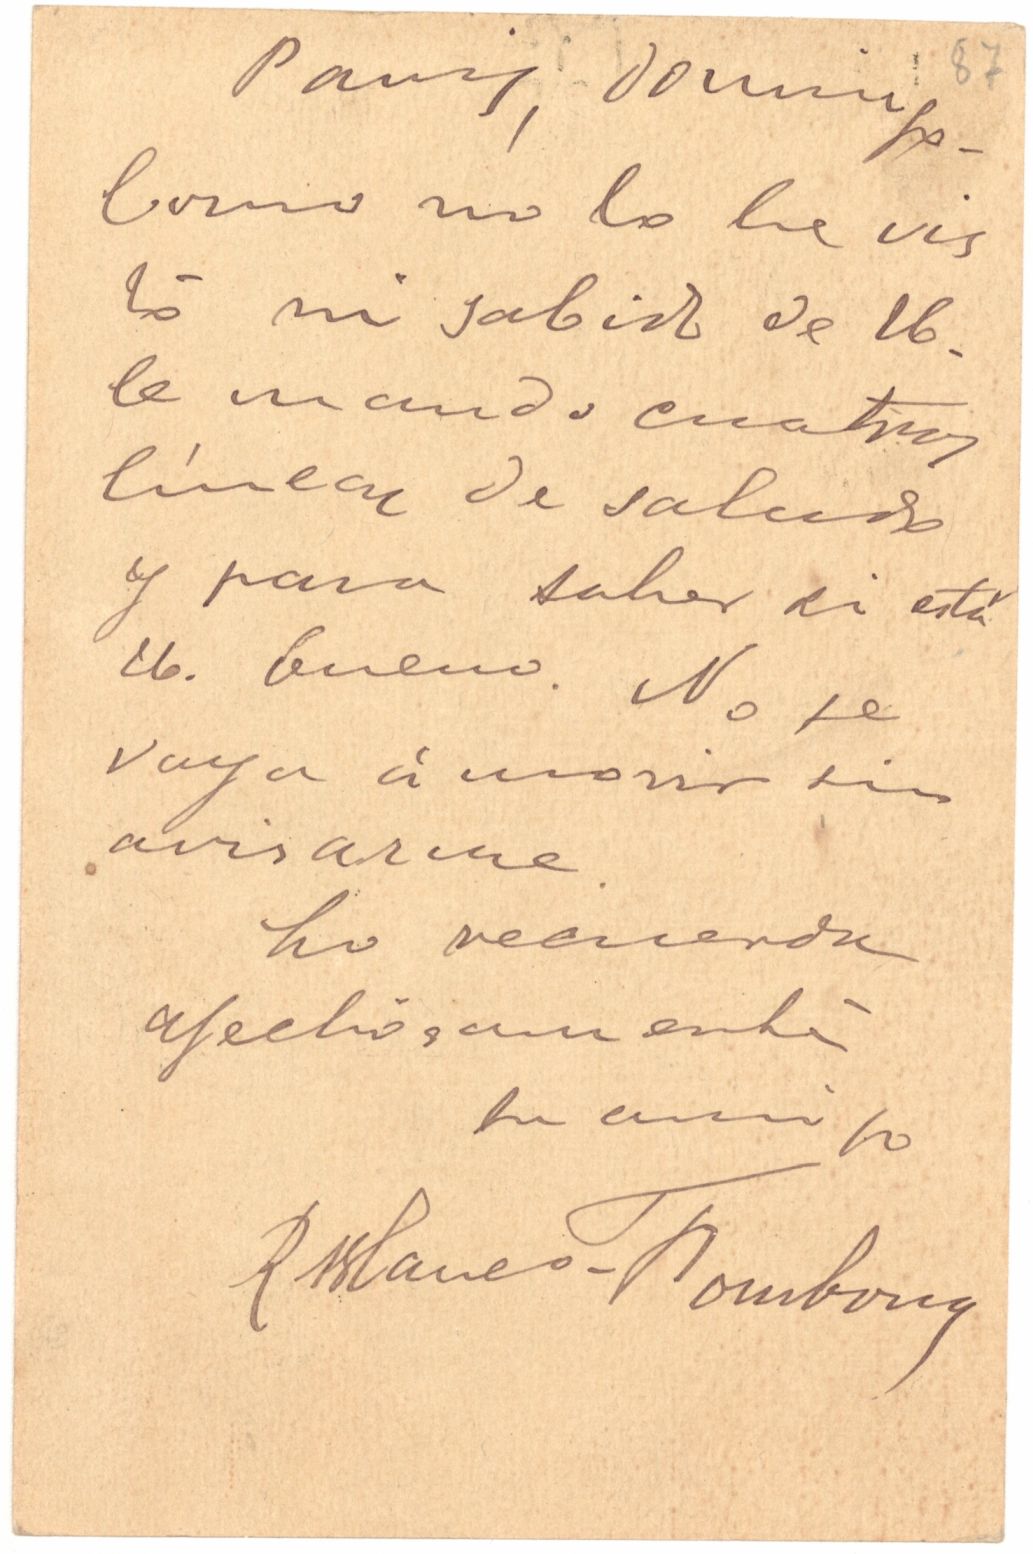 87
Paris, domingo-
Como no lo he vis
to ni sabido de Ud.
le mando cuatro
líneas de saludo
y para saber si está
Ud. bueno. No se
vaya á morir sin
avisarme.
Lo recuerda
afectiosamente
su amigo
R Blanco-Fombona